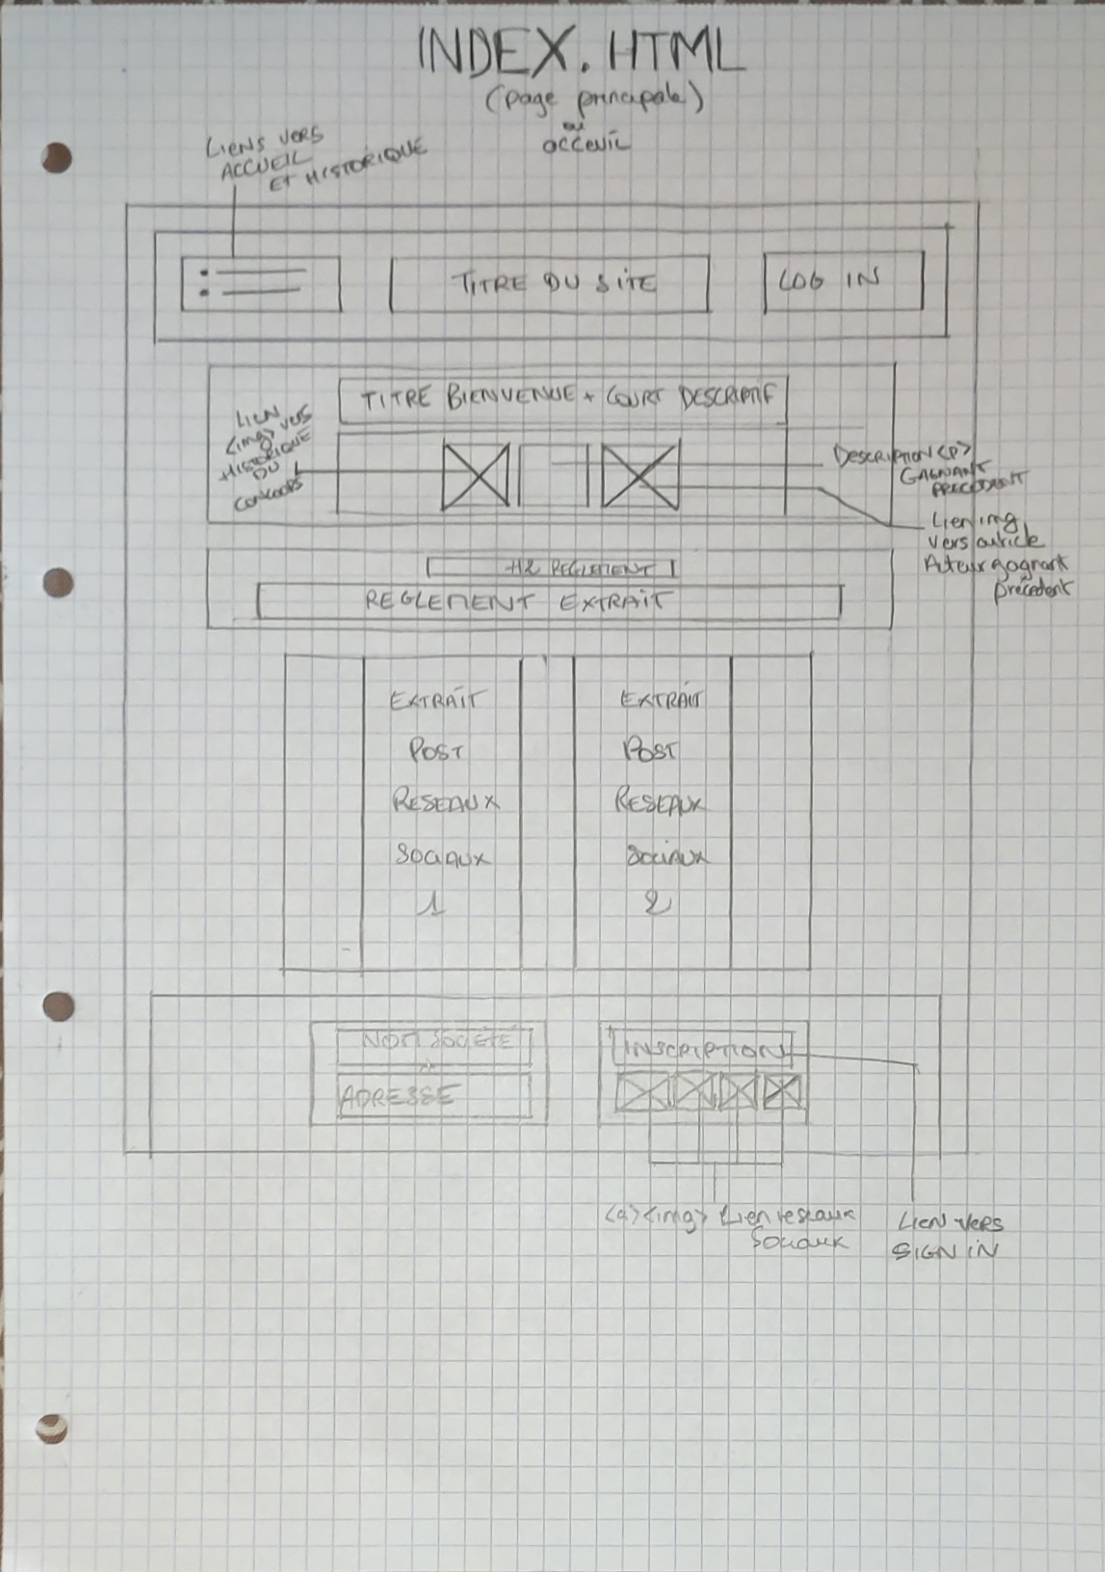 INDEX.HTML
(page principale)
ou
acceuil
LIENS VERS
ACCUEIL
ET HISTORIQUE
TITRE DU SITE
LOG IN
TITRE BIENVENUE + COURT DESCRIPTIF
LIEN
<img> VERS
HISTORIQUE
DU
CONCOURS
DESCRIPTION <P>
GAGNANT
PRECEDENT
Lien img
vers article
Auteur gagnant
précedent
H2 REGLEMENT
REGLEMENT EXTRAIT
EXTRAIT
POST
RESEAUX
SOCIAUX
1
EXTRAIT
POST
RESEAUX
SOCIAUX
2
NOM SOCIÉTÉ
ADRESSE
INSCRIPTION
<a><img> Lien reseaux
Sociaux
LIEN VERS
SIGN IN